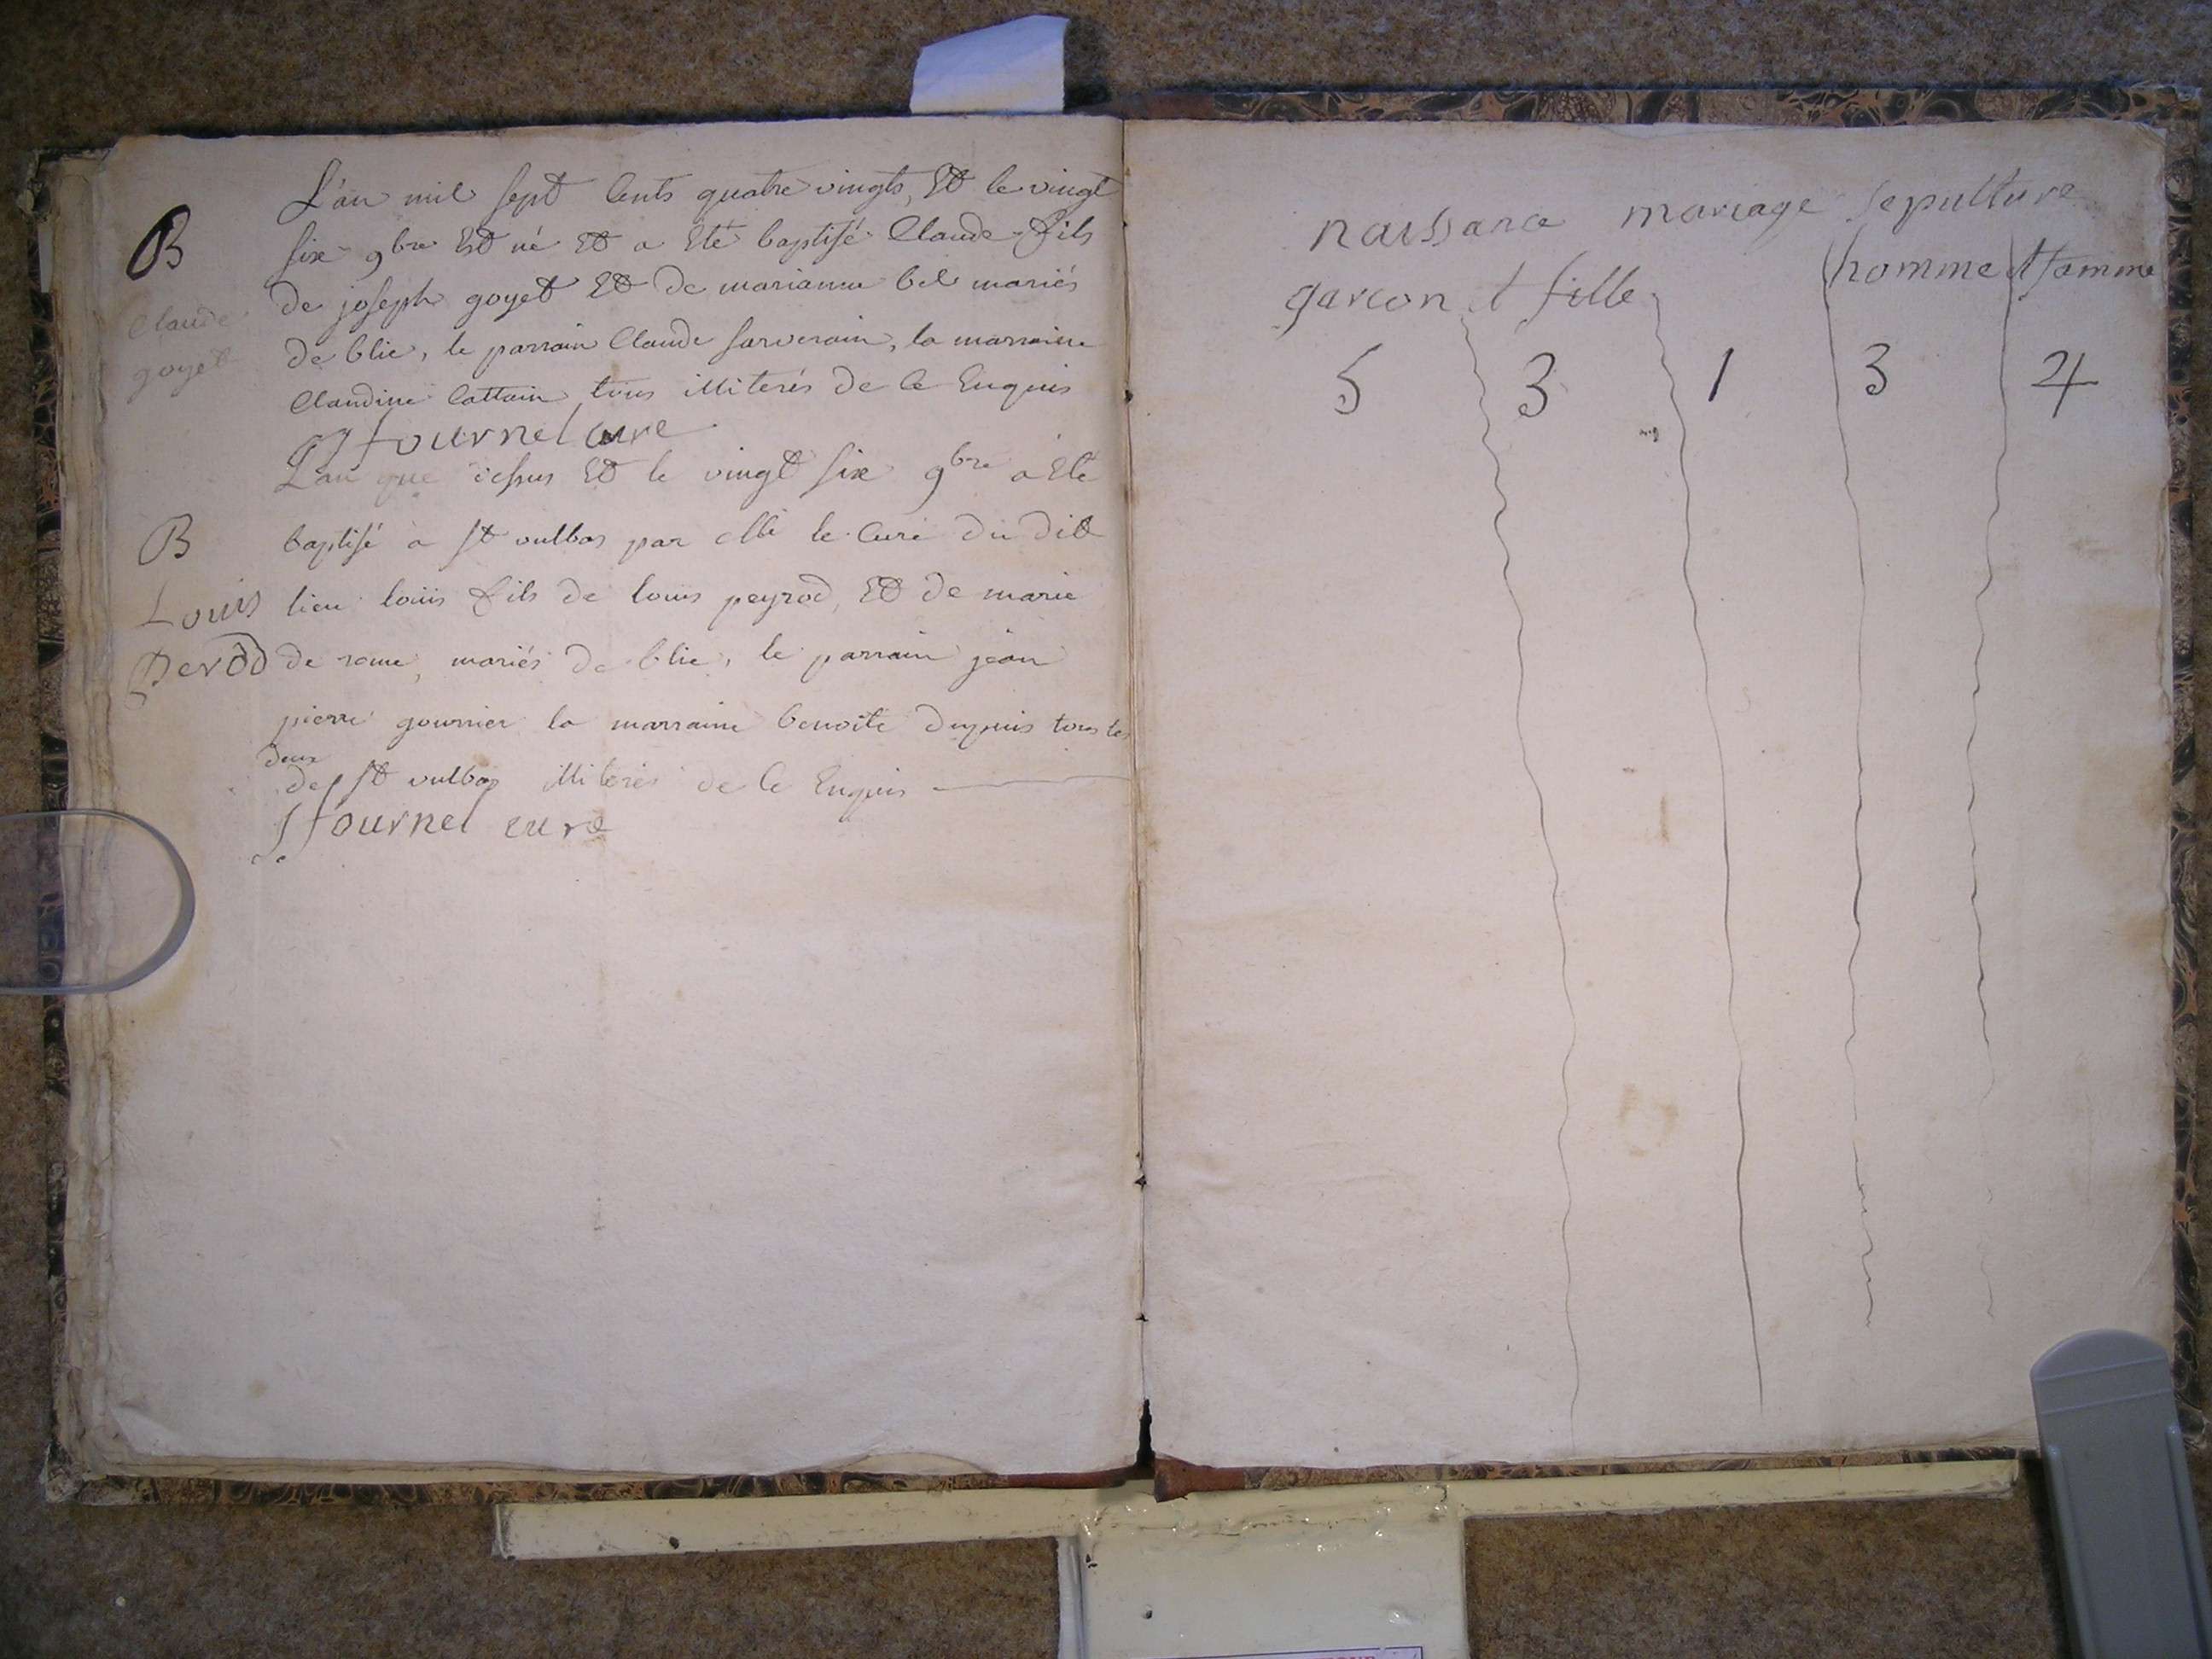 B
Claude
goyet
L'an mil sept Cents quatre vingts, Et le vingt
six 9bre Est né Et a Eté baptisé Claude fils
de joseph goyet Et de marianne bel mariés
de blie, le parrain Claude sarverain, la marraine
Claudine Cattain tous illiterés de Ce Enquis
fournel Curé
B
Louis
Perod
L'an que dessus Et le vingt six 9bre a Eté
baptisé a St vulbas par le Curé du dit
lieu louis fils de louis peyrod, Et de marie
de rome, mariés de blie, le parrain jean
pierre gournier la marraine benoite dupuis tous les
deux
de St vulbas illiterés de Ce Enquis
fournel curé
naissance mariage sepulture
garcon et fille homme et famme
5 3 1 3 4